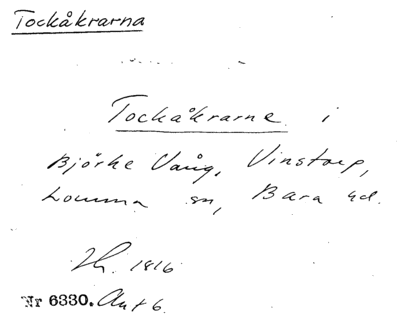 Tockåkrarna
Tockåkrarne i
Bjärke Vång, Vinstorp,
Lomma sn, Bara hd.
1816
Nr 6330. Akt 6.